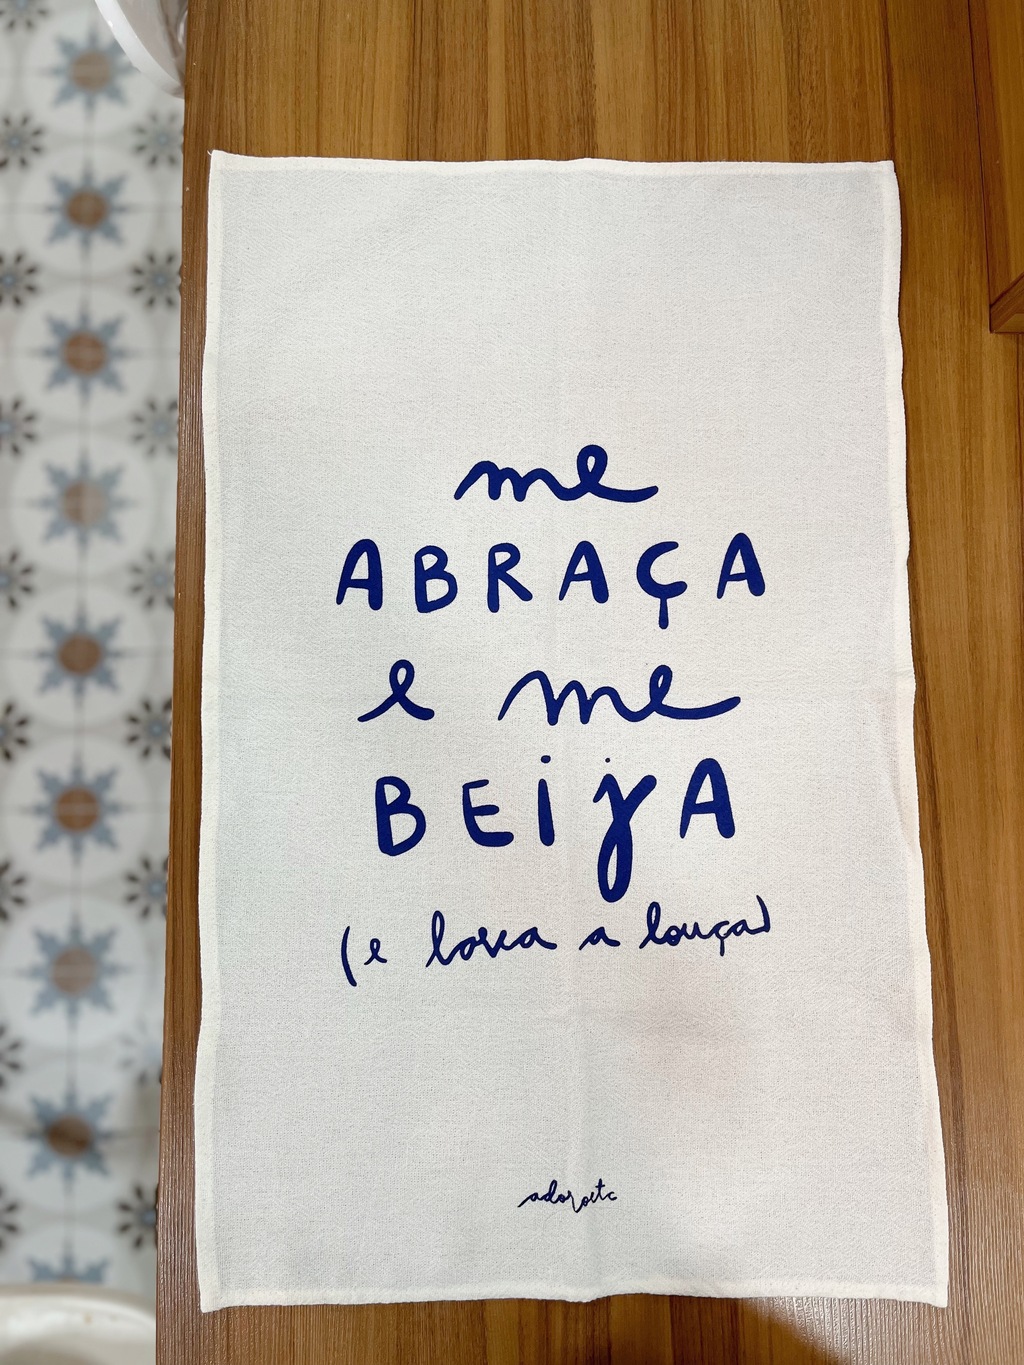 me
ABRAÇA
e me
BEIJA
(e lava a louça)
adoroetc